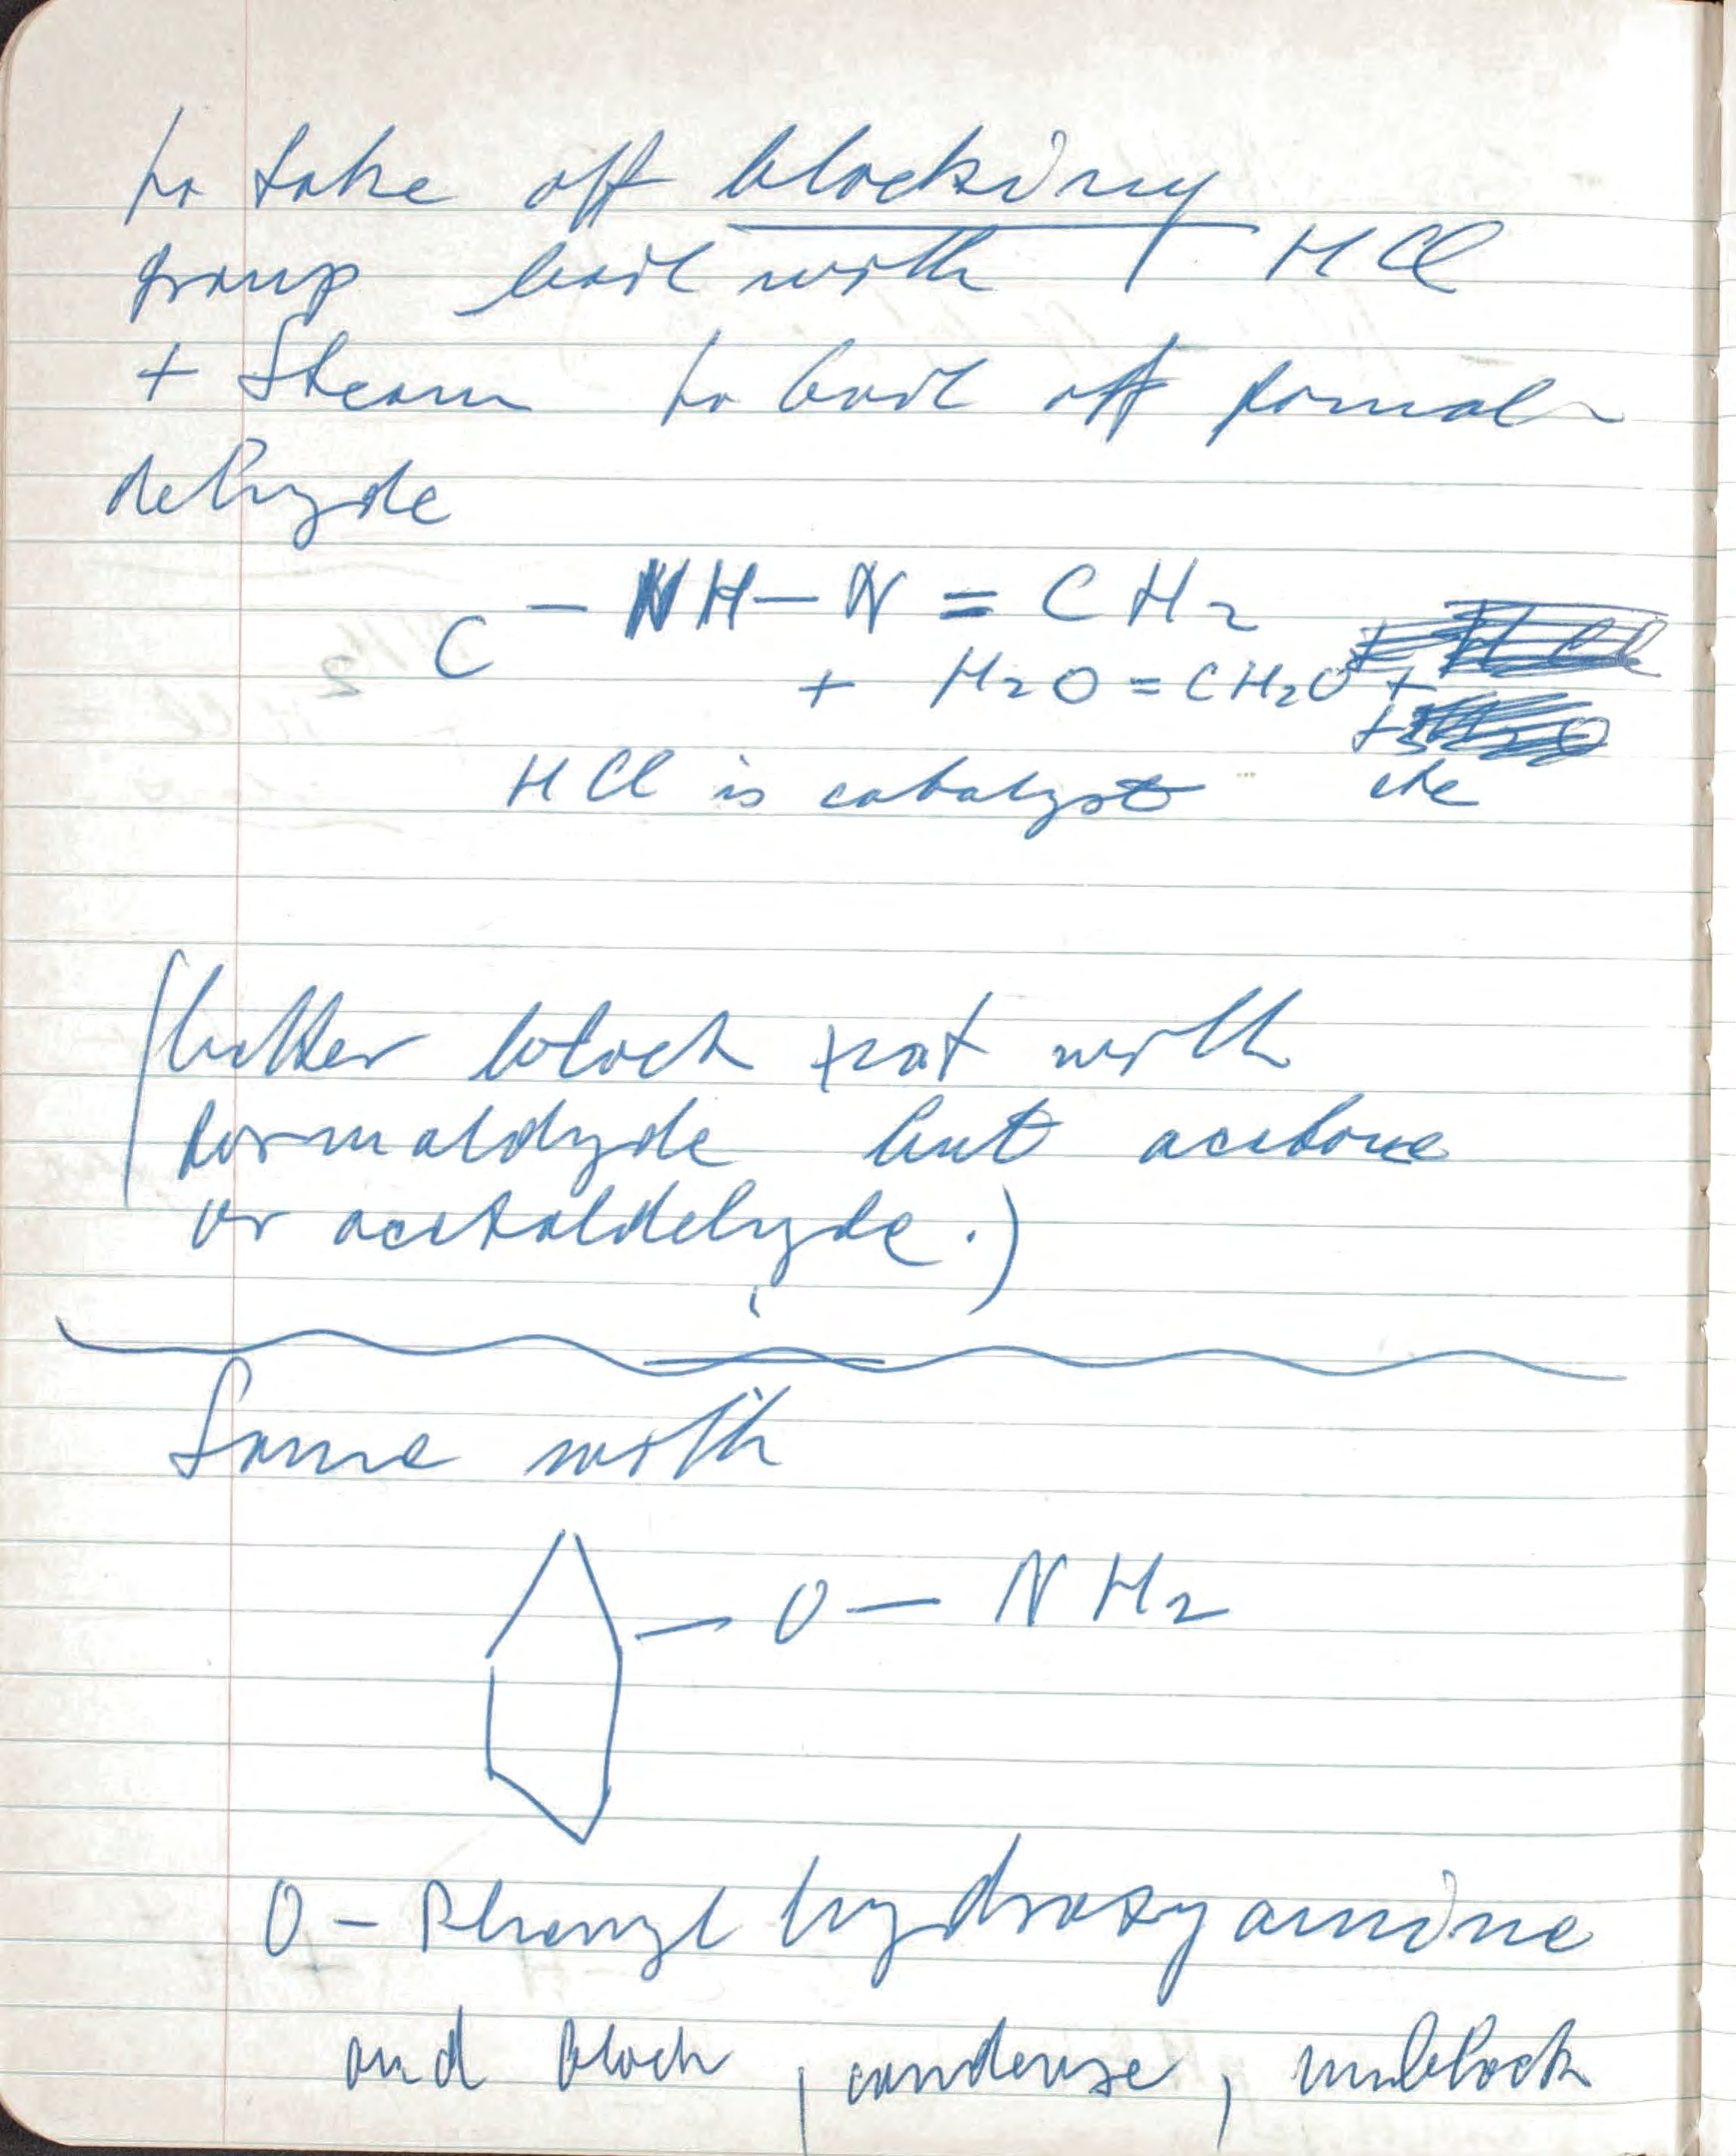 to take off blocking
group boil with HCl
+ Steam to boil off formal
dehyde
C - NH - N = CH2
+ H2O = CH2O +
HCl is catalyst etc
(better block not with
formaldyde but acetone
or acetaldehyde.)
Same with
- O - NH2
O - Phenyl hydroxyamine
and block, condense, unblock